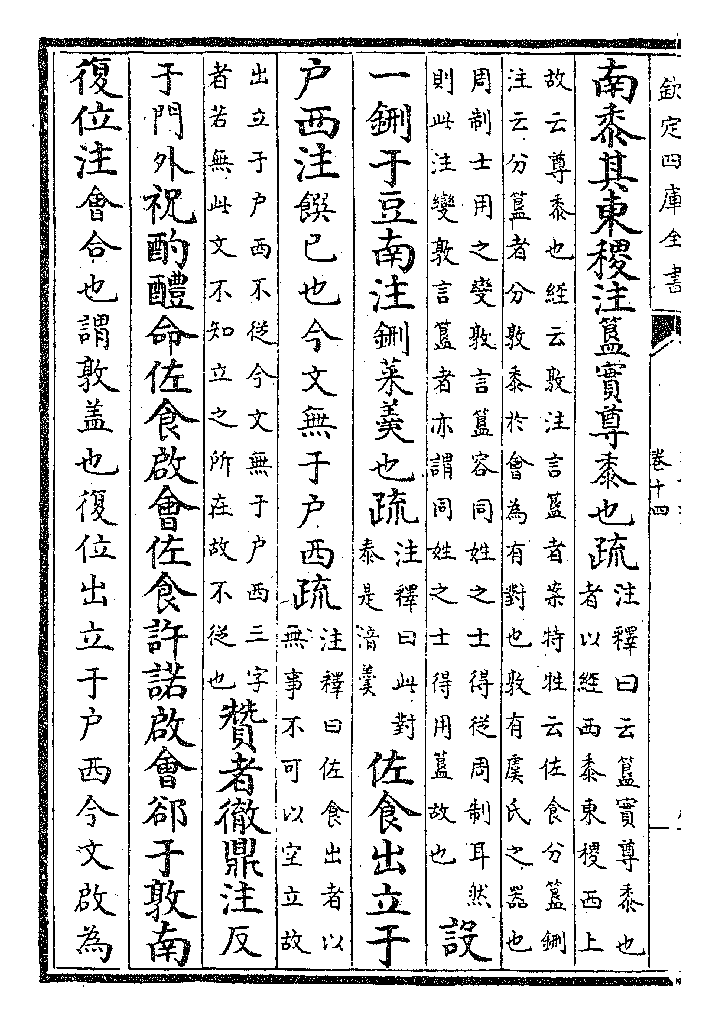 欽定四庫全書
卷十四
南黍其東稷注簋實尊黍也疏
注釋曰云簋實尊黍也
者以經西黍東稷西上
故云尊黍也經云敦注言簋者案特牲云佐食分簋鉶
注云分簋者分敦黍於會為有對也敦有虞氏之器也
周制士用之變敦言簋容同姓之士得從周制耳然
則此注變敦言簋者亦謂同姓之士得用簋故也
設
一鉶于豆南注鉶菜羹也疏
注釋曰此對
泰是湆羹
佐食出立于
户西注饌已也今文無于户西疏
注釋曰佐食出者以
無事不可以空立故
出立于户西不從今文無于户西三字
者若無此文不知立之所在故不從也
贊者徹鼎注反
于門外祝酌醴命佐食啟會佐食許諾啟會郤于敦南
復位注會合也謂敦盖也復位出立于户西今文啟為